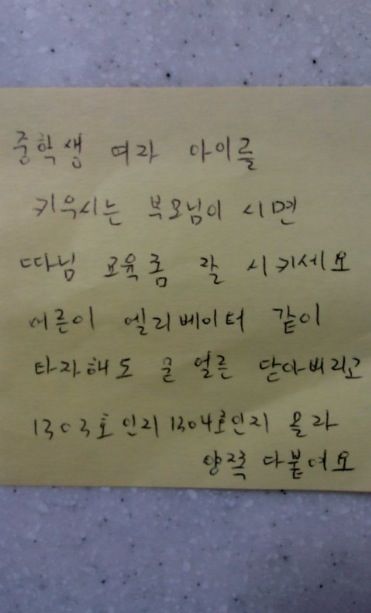 중학생 여자 아이를
키우시는 부모님이 시면
따님 교육좀 잘 시키세요
어른이 엘리베이터 같이
타자해도 문 얼른 닫아버리고
1303호인지 1304호인지 몰라
양쪽 다붙여요